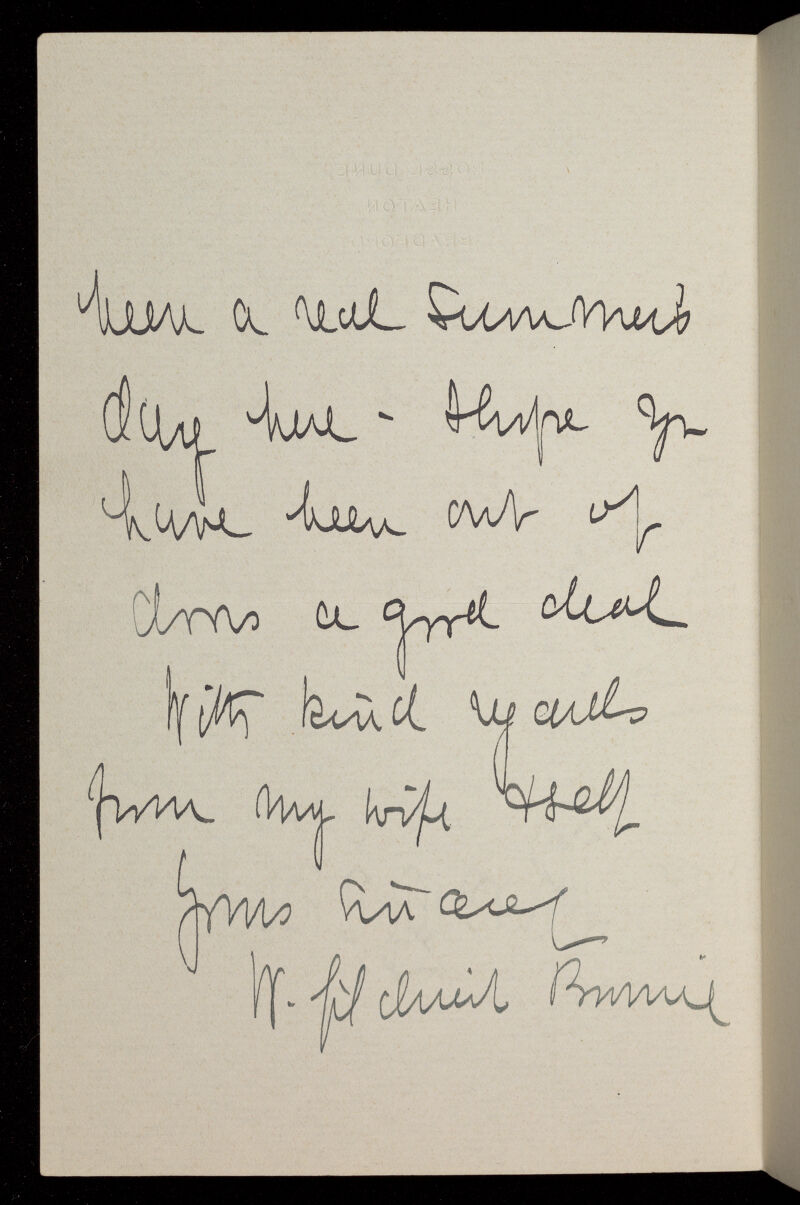 been a real Summer's
day here - I hope you
have been out of
doors a good deal
With kind regards
from my wife & self
Yours sincerely
W.